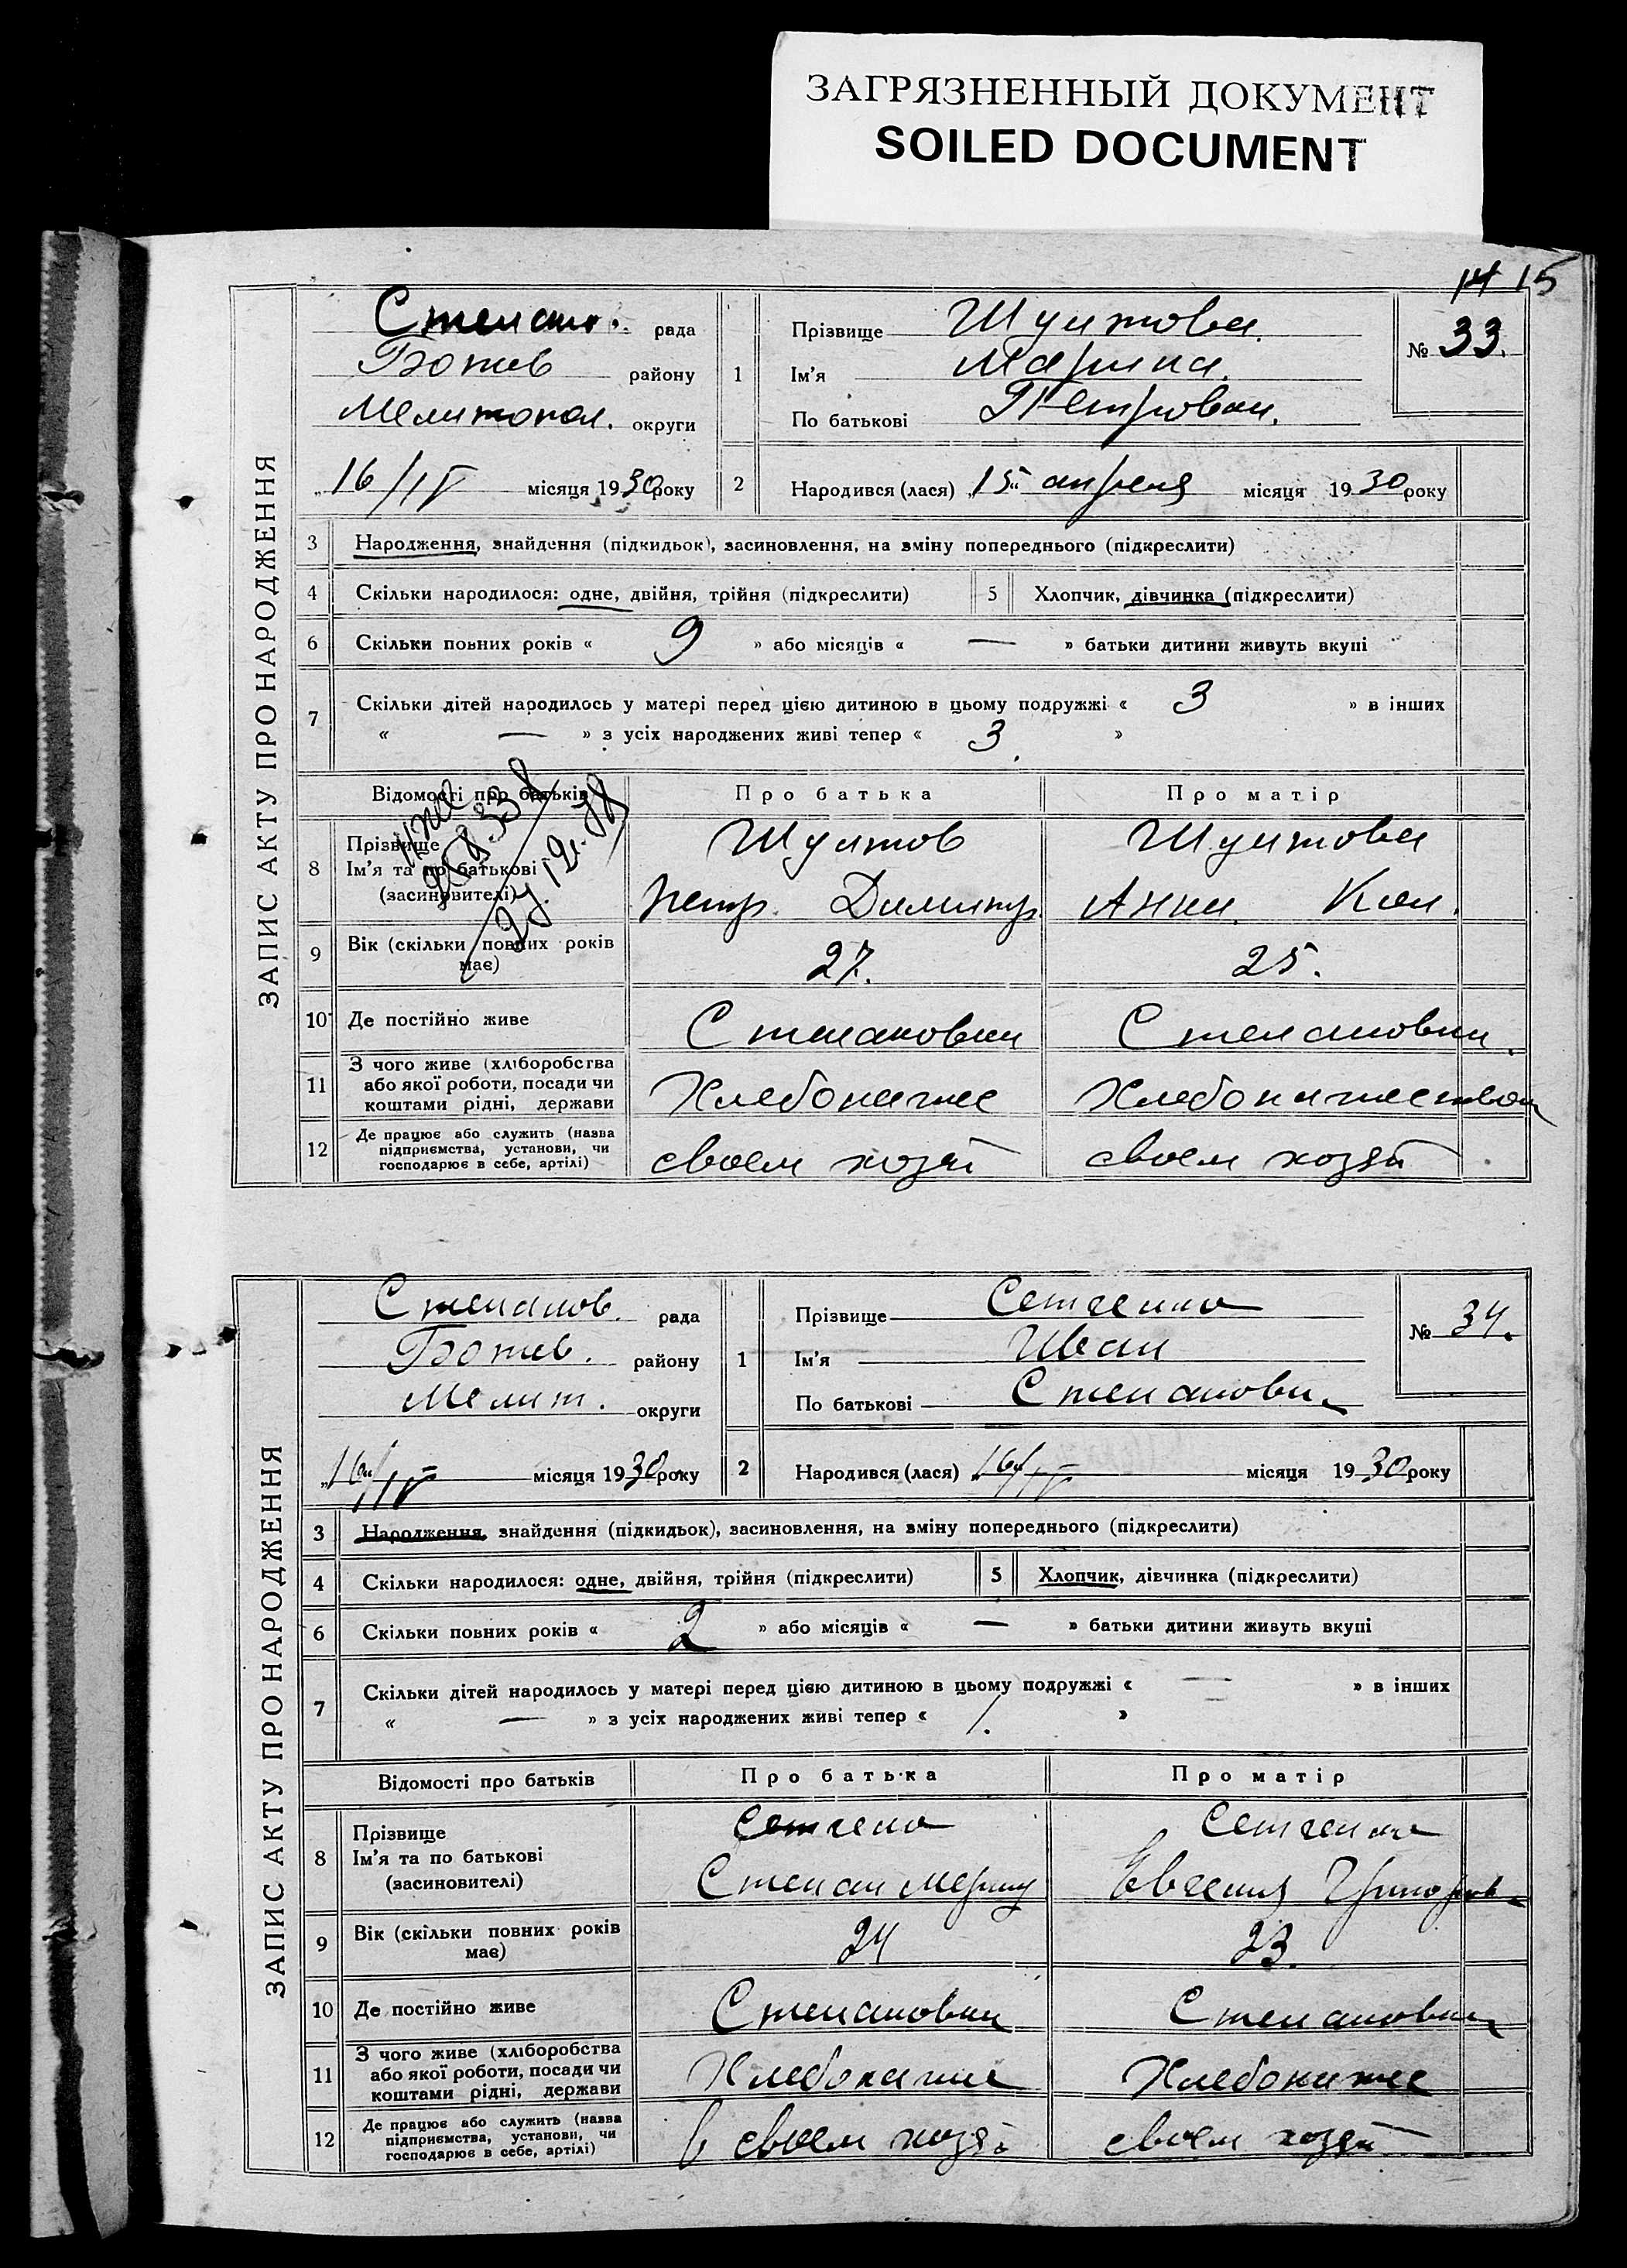 ЗАГРЯЗНЕННЫЙ ДОКУМЕНТ
SOILED DOCUMENT
14 15
ЗАПИС АКТУ ПРО НАРОДЖЕННЯ
Степано. рада
Ботев району
Мелитопол. округи
„16/IV місяця 1930 року
1 Прізвище Шултова.
Ім'я Марина.
По батькові Петровна.
№ 33.
2 Народився (лася) „15" апреля місяця 1930 року
3 Народження, знайдення (підкидьок), засиновлення, на зміну попереднього (підкреслити)
4 Скільки народилося: одне, двійня, трійня (підкреслити) 5 Хлопчик, дівчинка (підкреслити)
6 Скільки повних років « 9 » або місяців « — » батьки дитини живуть вкупі
7 Скільки дітей народилось у матері перед цією дитиною в цьому подружжі « 3 » в інших
« — » з усіх народжених живі тепер « 3. »
Відомості про батьків Про батька Про матір
8 Прізвище Ім'я та по батькові (засиновителі)
Шултов Шултова
Петр. Димитр. Анна.
9 Вік (скільки повних років має) 27. 25.
10 Де постійно живе Степановки Степановки.
11 З чого живе (хліборобства або якої роботи, посади чи коштами рідні, держави Хлебопаше Хлебопашеством
12 Де працює або служить (назва підприємства, установи, чи господарює в себе, артілі) своем хозяй своем хозяй
ЗАПИС АКТУ ПРО НАРОДЖЕННЯ
Степанов. рада
Ботев. району
Мелит. округи
„16"/IV місяця 1930 року
1 Прізвище Сетченко
Ім'я Иван
По батькові Степанови
№ 34.
2 Народився (лася) 16/IV місяця 1930 року
3 Народження, знайдення (підкидьок), засиновлення, на зміну попереднього (підкреслити)
4 Скільки народилося: одне, двійня, трійня (підкреслити) 5 Хлопчик, дівчинка (підкреслити)
6 Скільки повних років « 2 » або місяців « — » батьки дитини живуть вкупі
7 Скільки дітей народилось у матері перед цією дитиною в цьому подружжі « — » в інших
« — » з усіх народжених живі тепер « 1. »
Відомості про батьків Про батька Про матір
8 Прізвище Ім'я та по батькові (засиновителі)
Сетчено Сетченко
Степан Евгения Григоров
9 Вік (скільки повних років має) 24 23.
10 Де постійно живе Степановки Степановки
11 З чого живе (хліборобства або якої роботи, посади чи коштами рідні, держави Хлебопаше Хлебопаше
12 Де працює або служить (назва підприємства, установи, чи господарює в себе, артілі) в своем хозяй своем хозяй